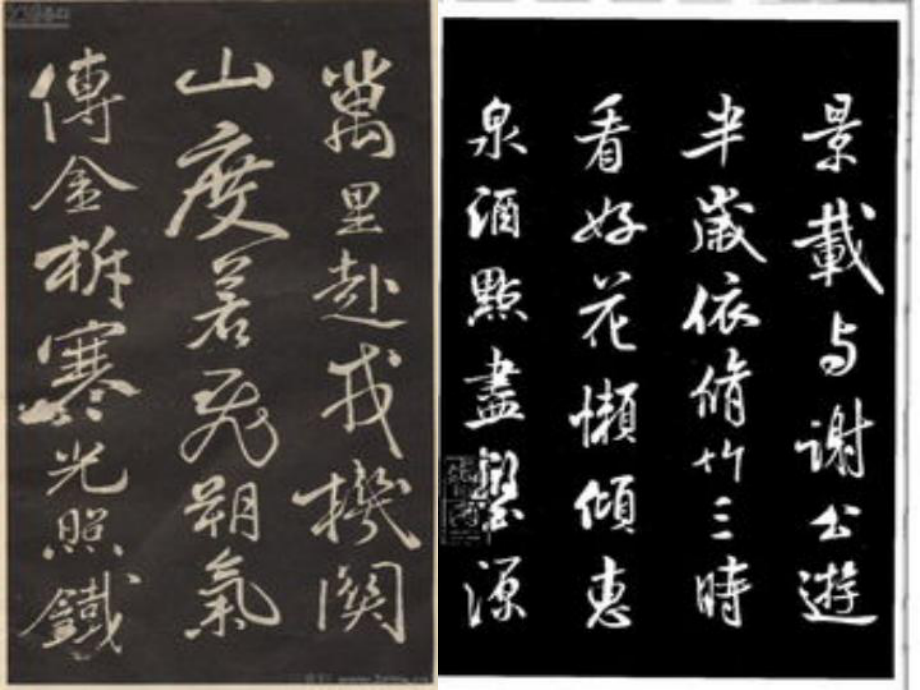 萬里赴戎機関
山度若飛朔氣
傳金柝寒光照鐵
景載与謝公遊
半歳依脩竹三時
看好花懶傾惠
泉酒點盡壑源